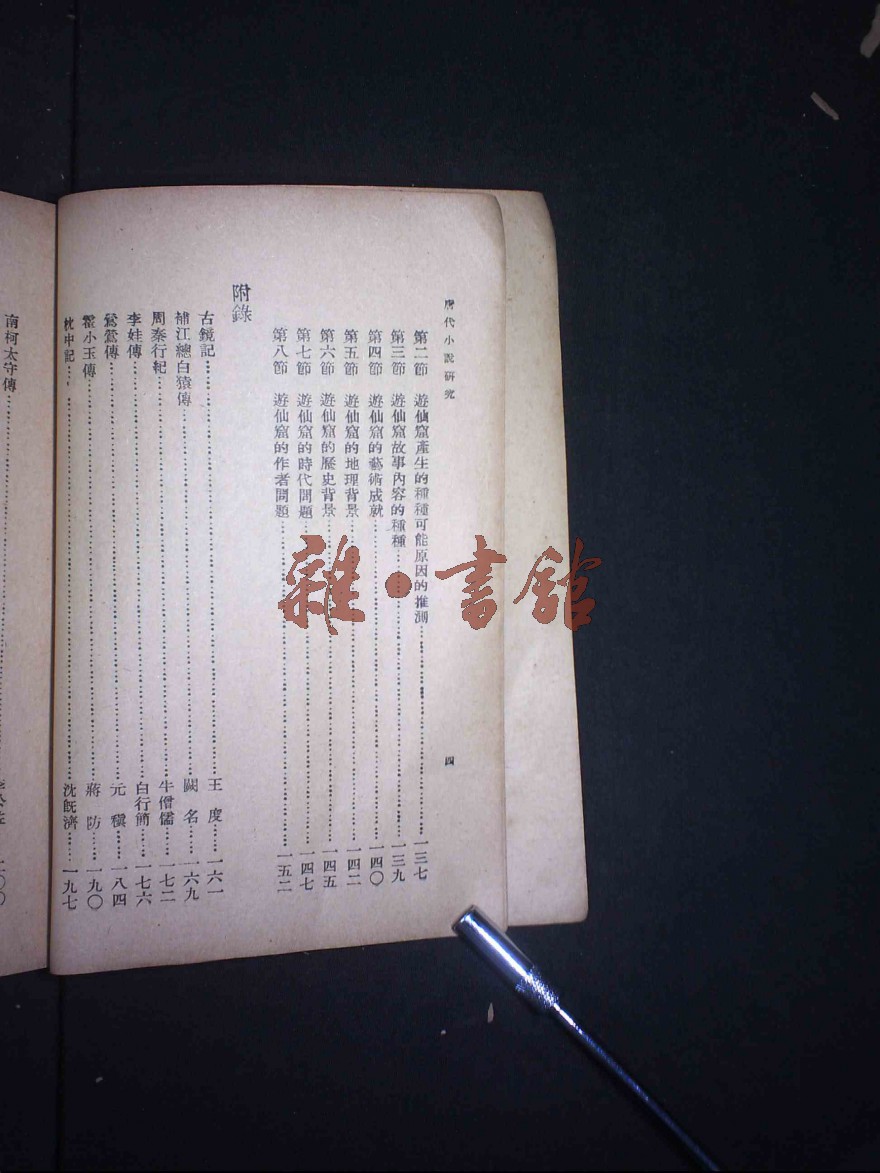 唐代小說研究
四
第二節　遊仙窟產生的種種可能原因的推測……一三七
第三節　遊仙窟故事內容的種種……一三九
第四節　遊仙窟的藝術成就……一四〇
第五節　遊仙窟的地理背景……一四二
第六節　遊仙窟的歷史背景……一四五
第七節　遊仙窟的時代問題……一四七
第八節　遊仙窟的作者問題……一五二
附錄
古鏡記……王　度……一六一
補江總白猿傳……闕　名……一六九
周秦行紀……牛僧儒……一七二
李娃傳……白行簡……一七六
鶯鶯傳……元　稹……一八四
霍小玉傳……蔣　防……一九〇
枕中記……沈既濟……一九七
南柯太守傳……
雜·書館